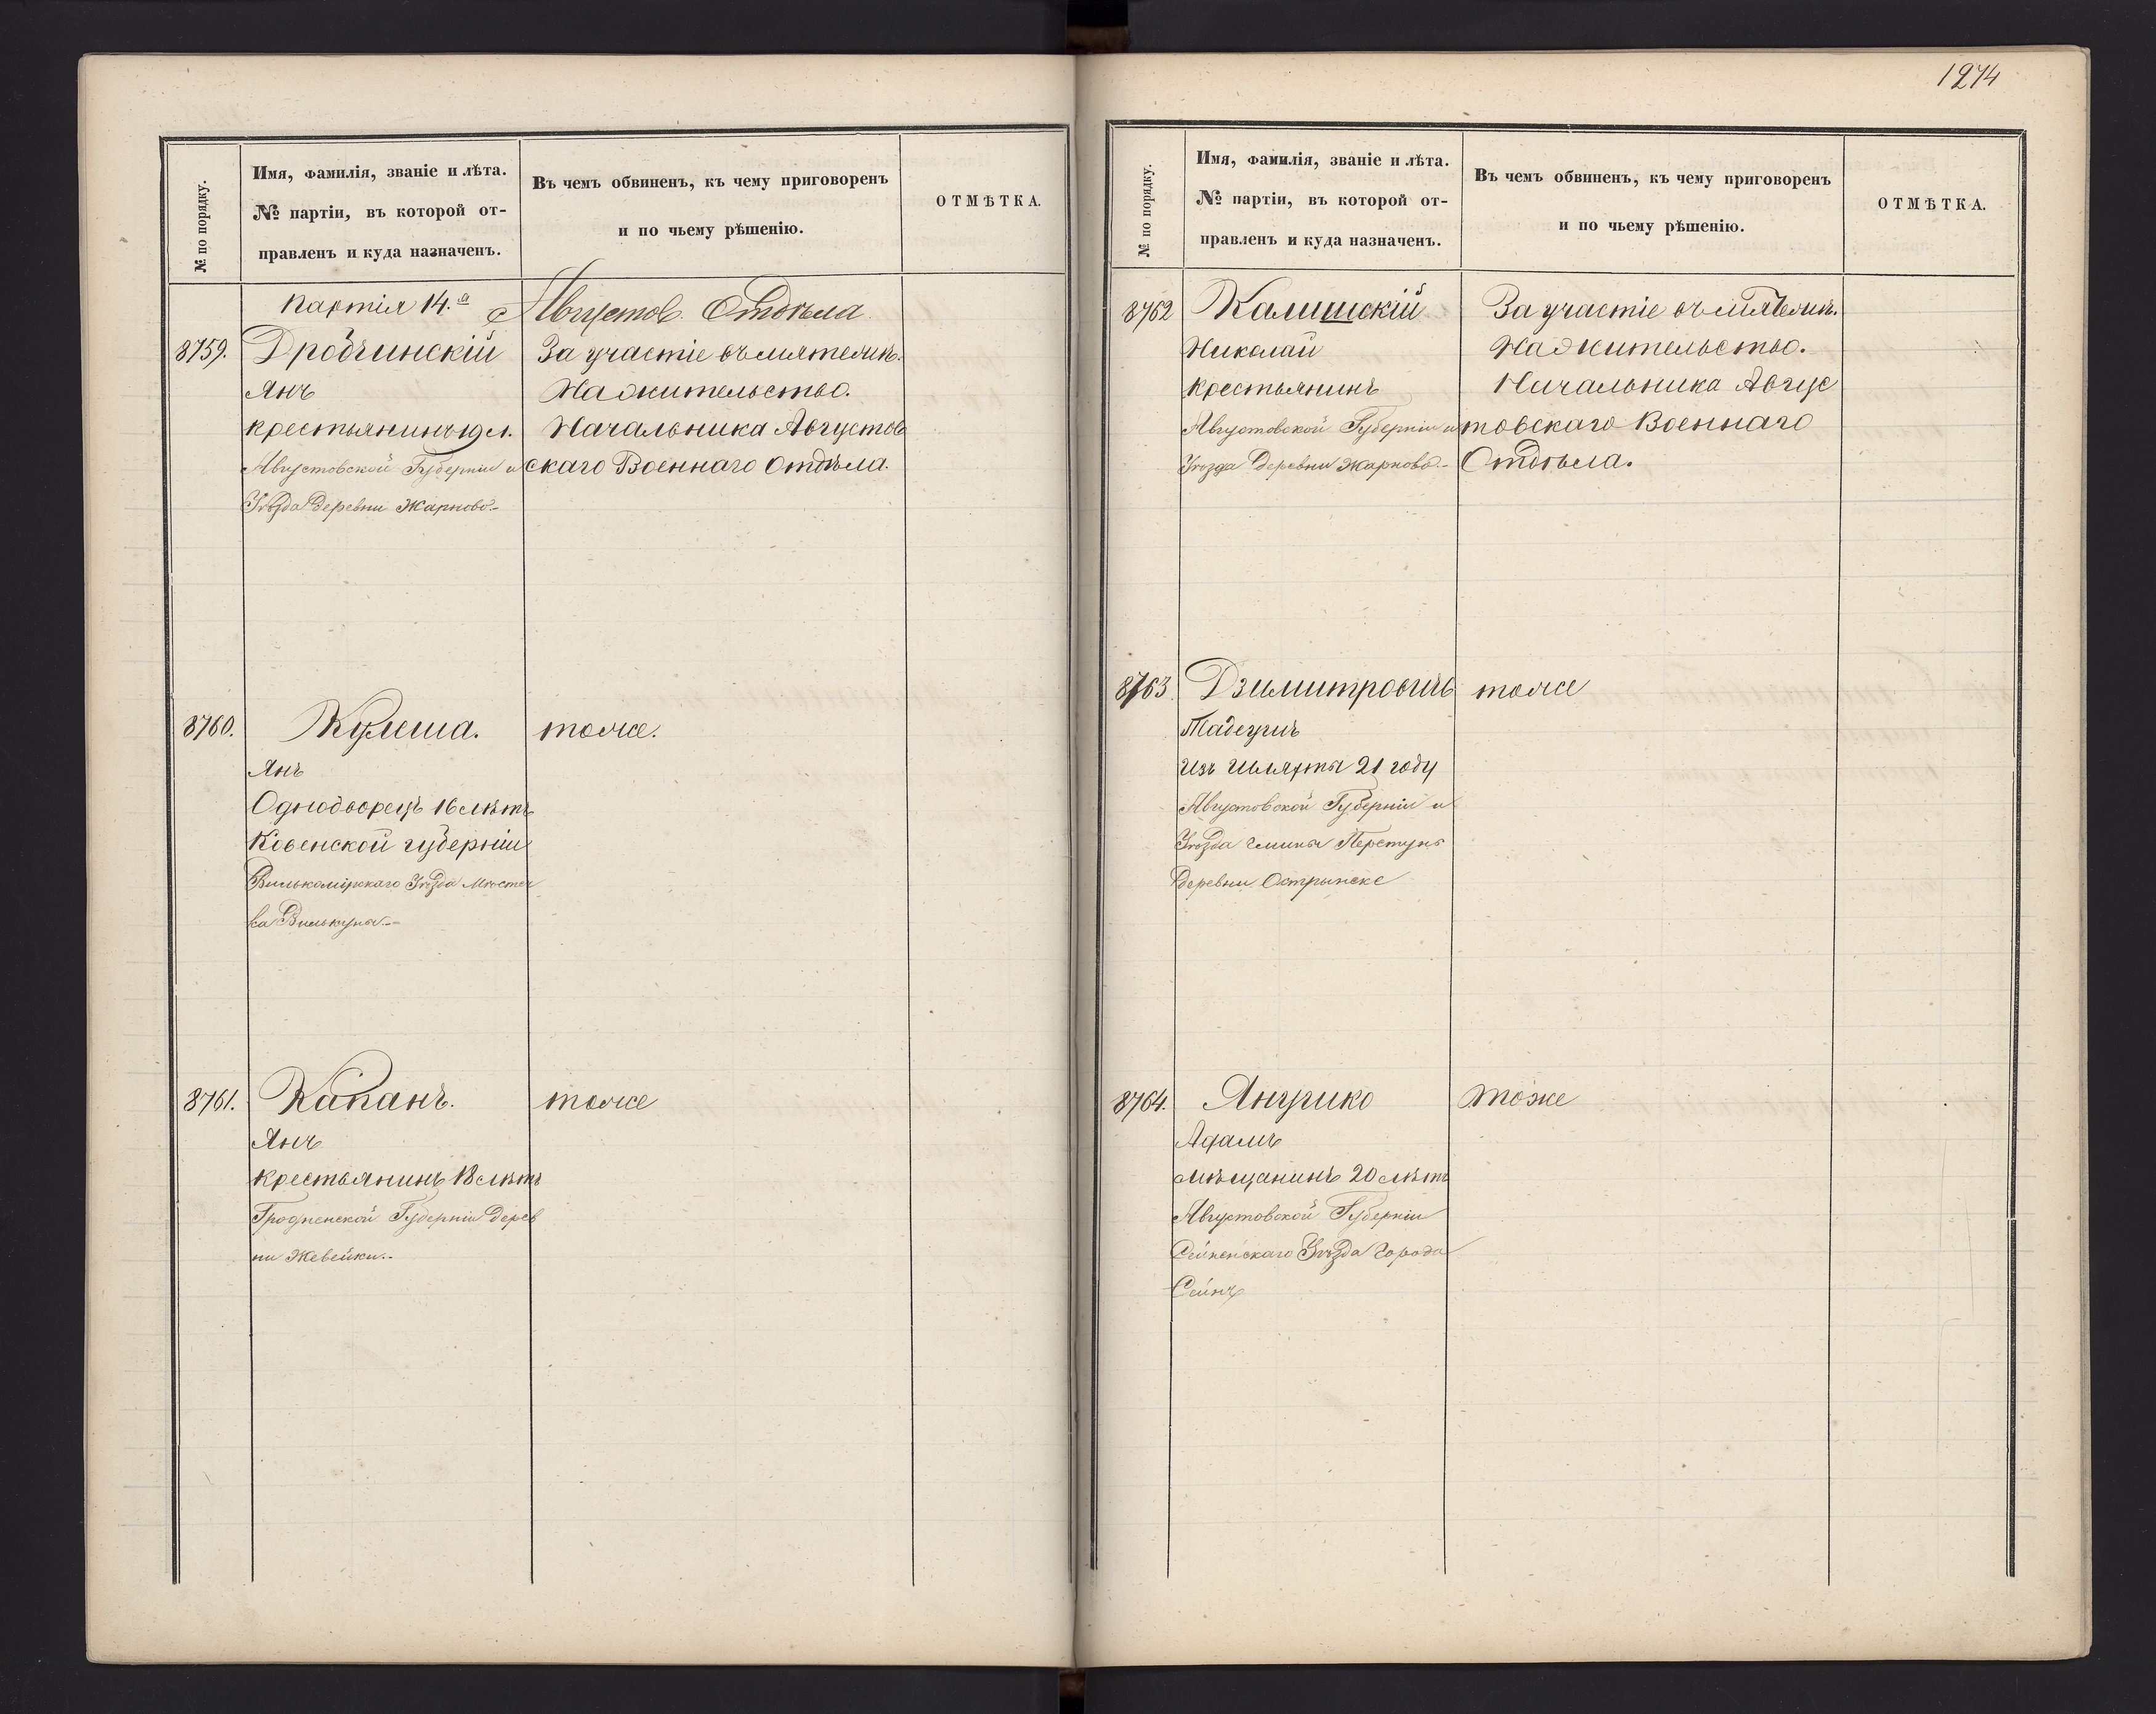 № по порядку.
Имя, фамилія, званіе и лѣта.
№ партіи, въ которой от-
правленъ и куда назначенъ.
Въ чемъ обвиненъ, къ чему приговоренъ
и по чьему рѣшенію.
ОТМѢТКА.
Партія 14.а Августов. Отдѣла.
8759. Дробчинскій За участіе въ мятежѣ.
Янъ На жительство.
крестьянинъ 19 л. Начальника Августов
Августовской Губерніи и скаго Военнаго Отдѣла.
Уѣзда деревни Жарново.-
8760. Кулеша. тоже.
Янъ
Однодворецъ 16 лѣтъ
Ковенской губерніи
Вилькомірскаго Уѣзда Мѣстеч
ка Вилькуны.--
8761. Капанъ. тоже
Янъ
крестьянинъ 18 лѣтъ
Гродненской Губерніи дерев
ни Жевейки.-
1274
№ по порядку.
Имя, фамилія, званіе и лѣта.
№ партіи, въ которой от-
правленъ и куда назначенъ.
Въ чемъ обвиненъ, къ чему приговоренъ
и по чьему рѣшенію.
ОТМѢТКА.
8762 Калишскій За участіе въ мятежѣ.
Николай На жительство.
крестьянинъ Начальника Авгус
Августовской Губерніи и товскаго Военнаго
Уѣзда деревни Жарново.- Отдѣла.
8763. Дзимитровичъ тоже
Тадеушъ
Изъ шляхты 21 году
Августовской Губерніи и
Уѣзда гмины Перстунъ
деревни Острынске
8764. Янушко тоже
Адамъ
мѣщанинъ 20 лѣтъ
Августовской Губерніи
Сейненскаго Уѣзда города
Сейнъ